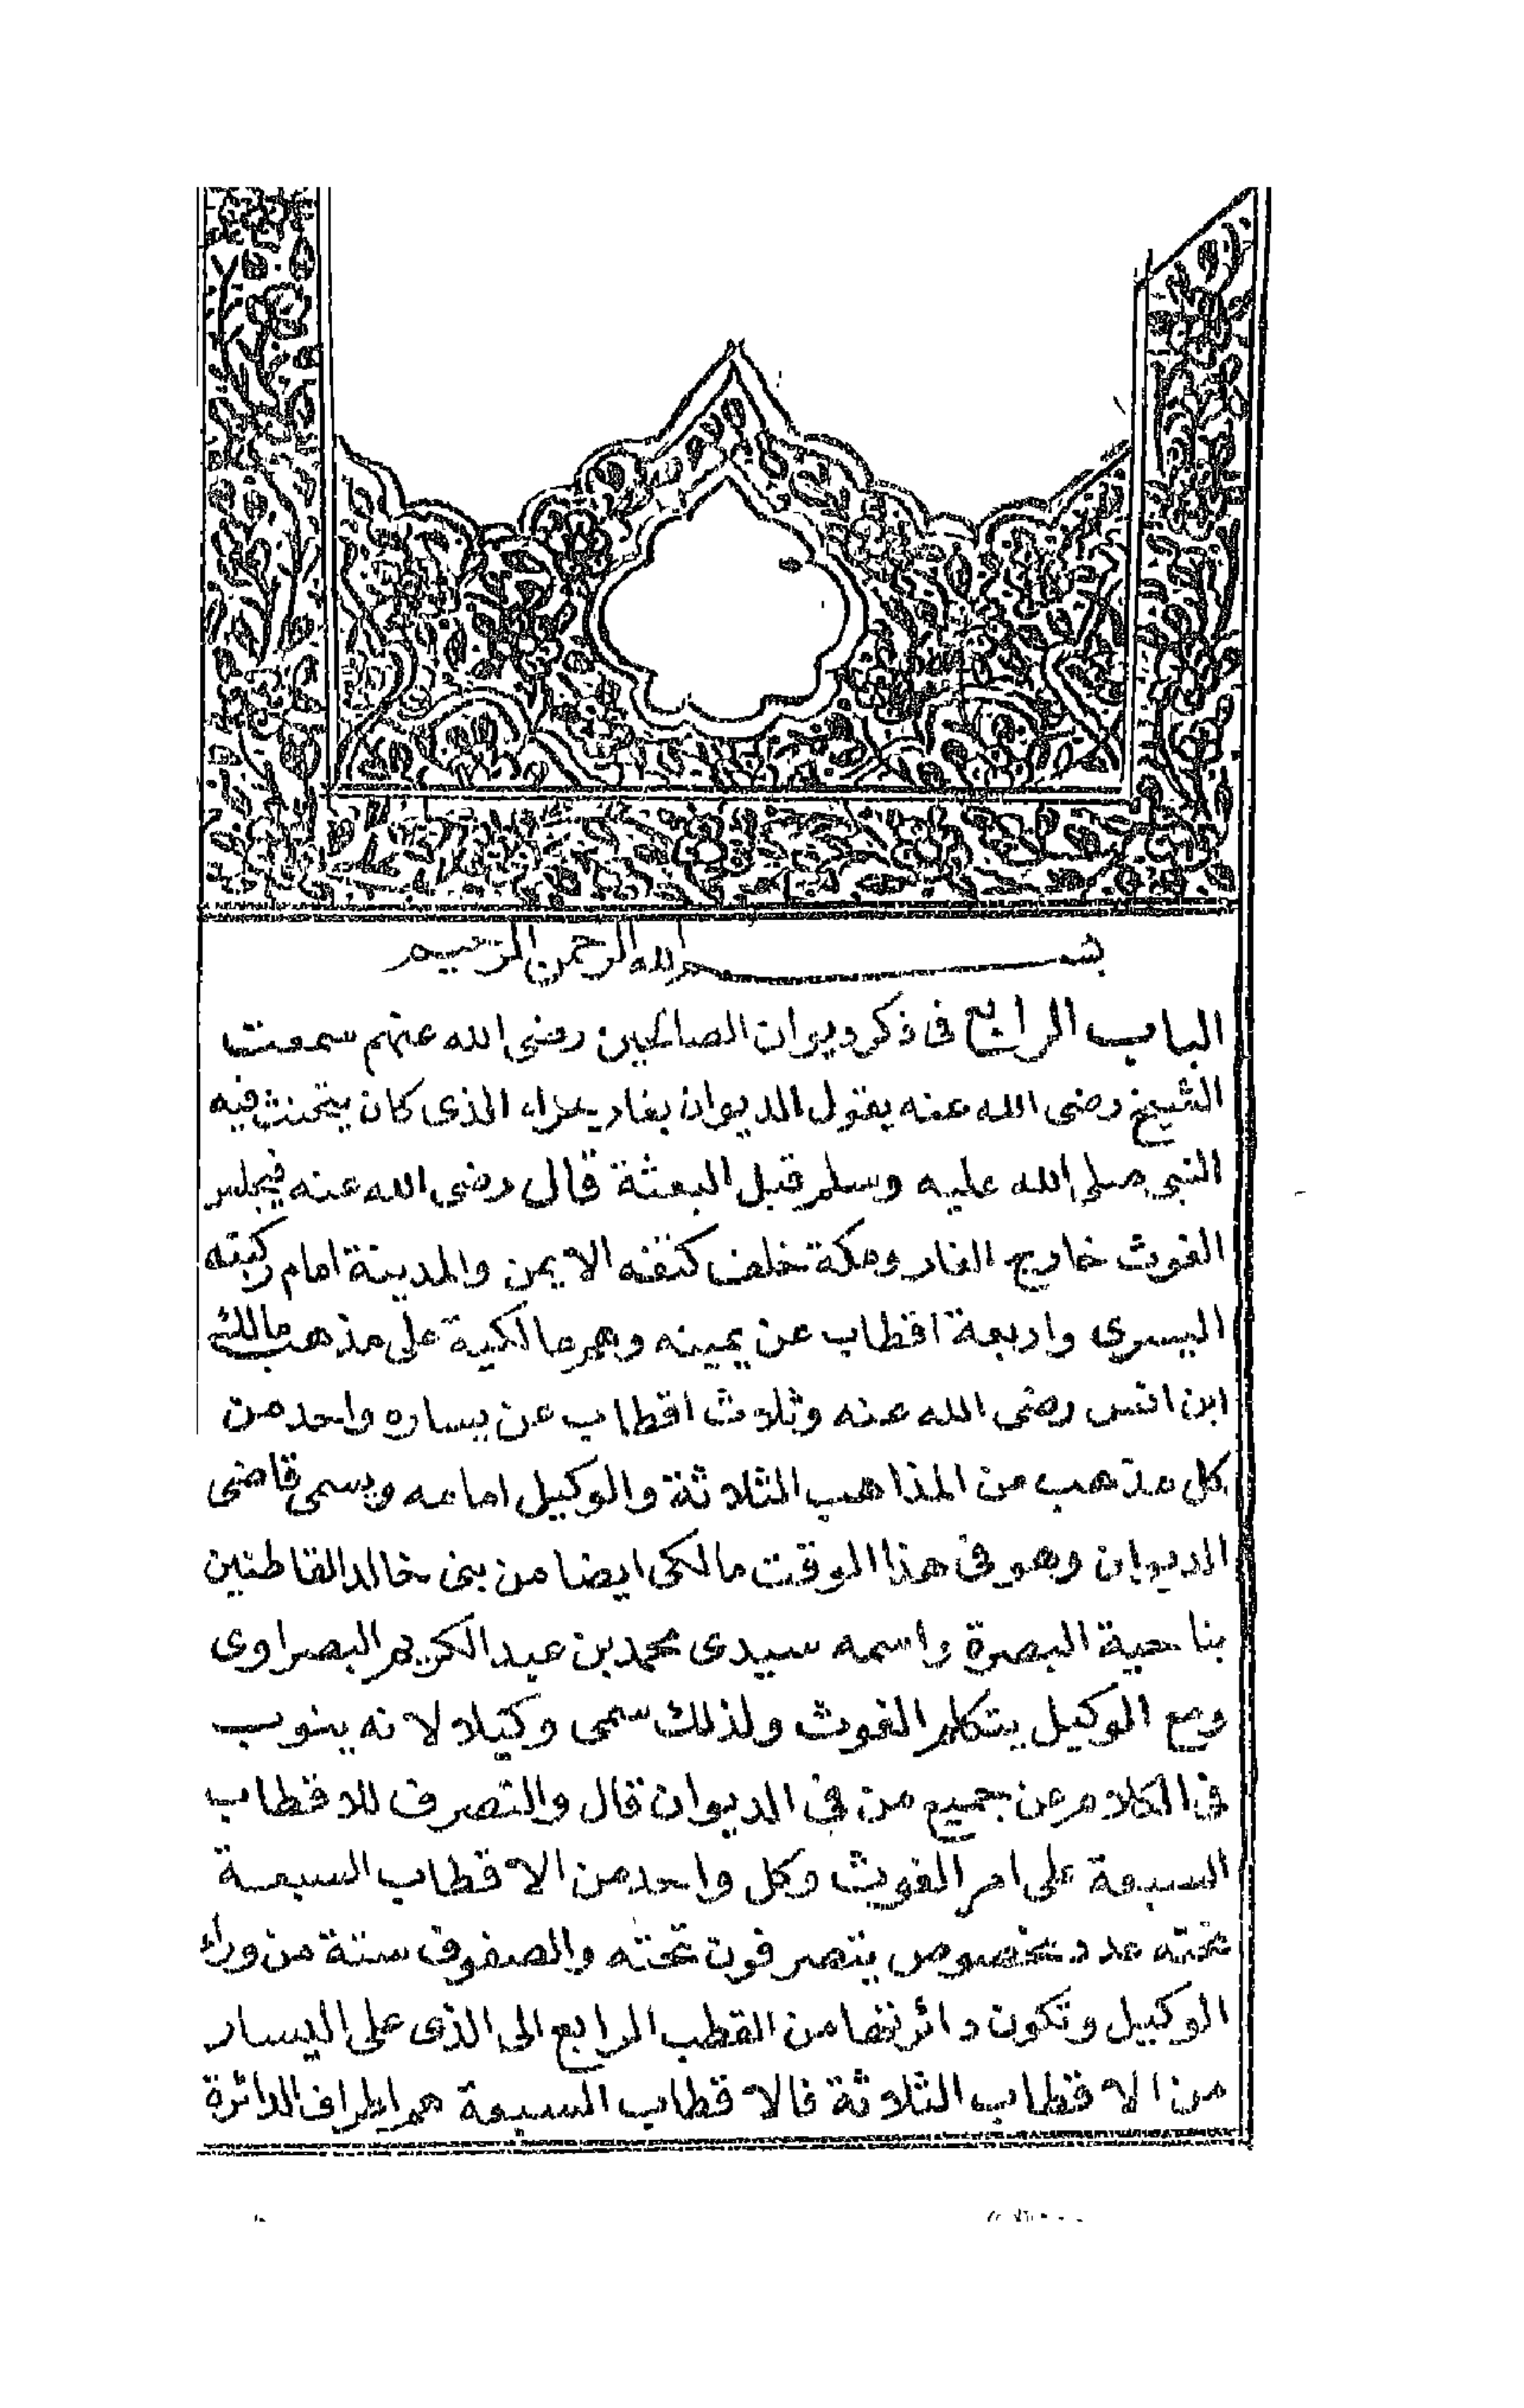 بسم الله الرحمن الرحيم
الباب الرابع فى ذكر ديوان الصالحين رضى الله عنهم سمعت
الشيخ رضى الله عنه يقول الديوان بغار حراء الذى كان يتحنث فيه
النبى صلى الله عليه وسلم قبل البعثة قال رضى الله عنه فيجلس
الغوث خارج الغار ومكة خلف كتفه الايمن والمدينة امام ركبته
اليسرى واربعة اقطاب عن يمينه وهم مالكية على مذهب مالك
ابن انس رضى الله عنه وثلاث اقطاب عن يساره واحد من
كل مذهب من المذاهب الثلاثة والوكيل امامه ويسمى قاضى
الديوان وهو فى هذا الوقت مالكى ايضا من بنى خالد القاطنين
بناحية البصرة واسمه سيدى محمد بن عبد الكريم البصراوى
ومع الوكيل يتكلم الغوث ولذلك سمى وكيلا لانه ينوب
فى الكلام عن جميع من فى الديوان قال والتصرف للاقطاب
السبعة على امر الغوث وكل واحد من الاقطاب السبعة
تحته عدد مخصوص يتصرفون تحته والصفوف ستة من وراء
الوكيل وتكون دائرتها من القطب الرابع الى الذى على اليسار
من الاقطاب الثلاثة فالاقطاب السبعة هم اطراف الدائرة